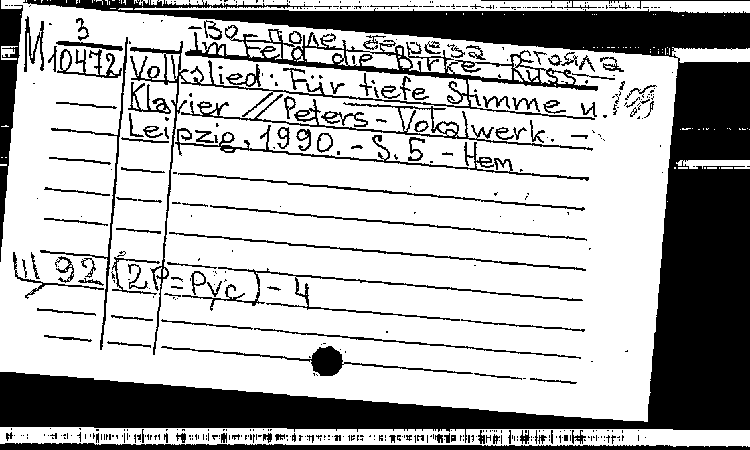 3
Во поле береза стояла
M Im Feld die Birke. Russ.
10472 Volkslied: Für tiefe Stimme u. 199
Klavier // Peters - Vokalwerk. -
Leipzig, 1990. - S. 5. - Нем.
Ш 92 (2Р=Рус) - 4